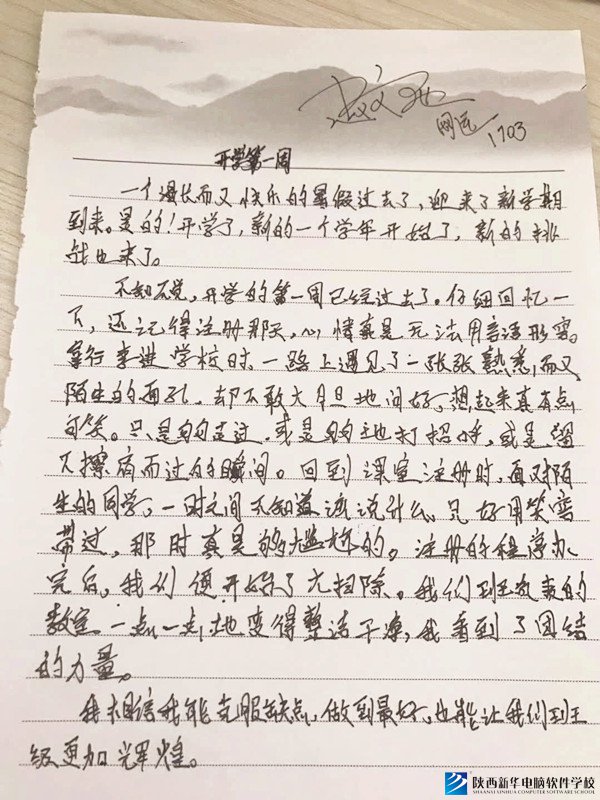 赵文
网运
1703
开学第一周
一个漫长而又快乐的暑假过去了，迎来了新学期
到来。是的！开学了，新的一个学年开始了，新的挑
战也来了。
不知不觉，开学的第一周已经过去了。仔细回忆一
下，还记得注册那天，心情真是无法用言语形容。
拿行李进学校时，一路上遇见了一张张熟悉，而又
陌生的面孔，却不敢大胆地问好，想起来真有点
可笑。只是的走过，或是的地打招呼，或是留
擦肩而过的瞬间。回到课室注册时，面对陌
生的同学，一时之间不知道该说什么，只好用笑
带过，那时真是够尴尬的。注册的程序办
完后，我们便开始了大扫除。我们班的
教室一点一点地变得整洁干净，我看到了团结
的力量。
我相信我能克服缺点，做到最好，也能让我们班
级更加辉煌。
陕西新华电脑软件学校
SHAANXI XINHUA COMPUTER SOFTWARE SCHOOL